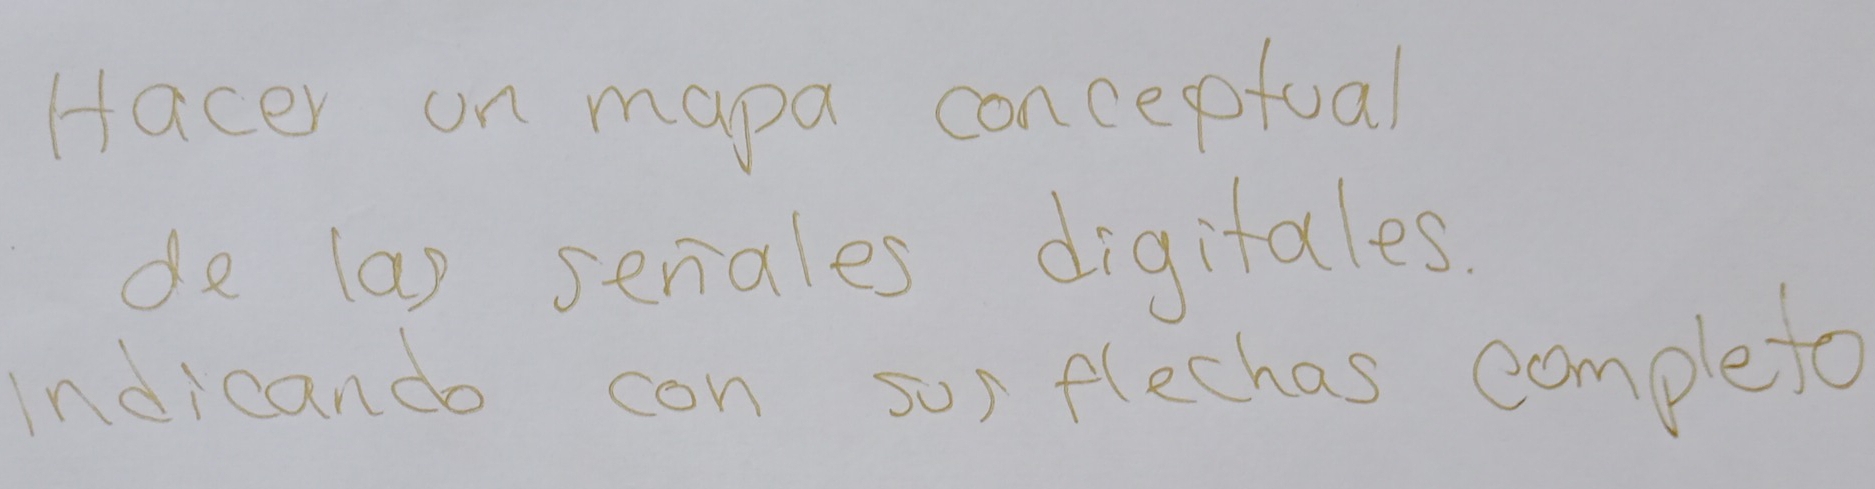 Hacer un mapa conceptual
de las señales digitales.
Indicando con sus flechas completo